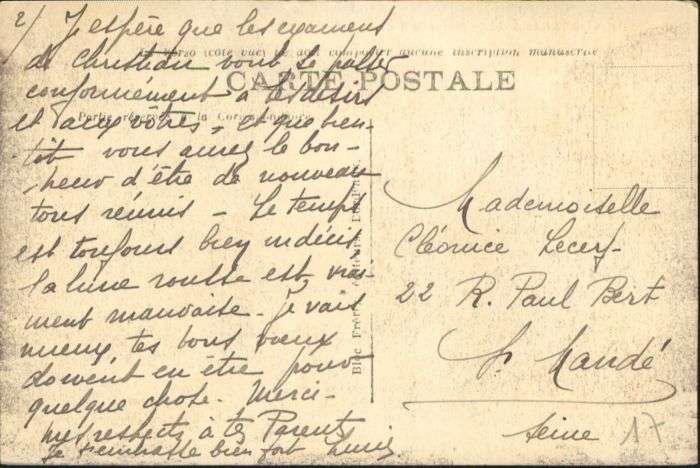 2/ J'espère que les examens
de Christian vont se passer
conformément à ses désirs
et aux vôtres - et que bien-
tôt vous aurez le bon-
heur d'être de nouveau
tous réunis - Le temps
est toujours bien indécis,
la lune rousse est vrai-
ment mauvaise. Je vais
mieux, tes bons vœux
doivent en être pour
quelque chose. Merci -
mes respects à tes Parents
je t'embrasse bien fort
Le verso (côté vue) ne doit comporter aucune inscription manuscrite
CARTE POSTALE
Partie réservée à la Correspondance
Mademoiselle
Cléonice Lecerf
22 R. Paul Bert
St Mandé
Seine
17